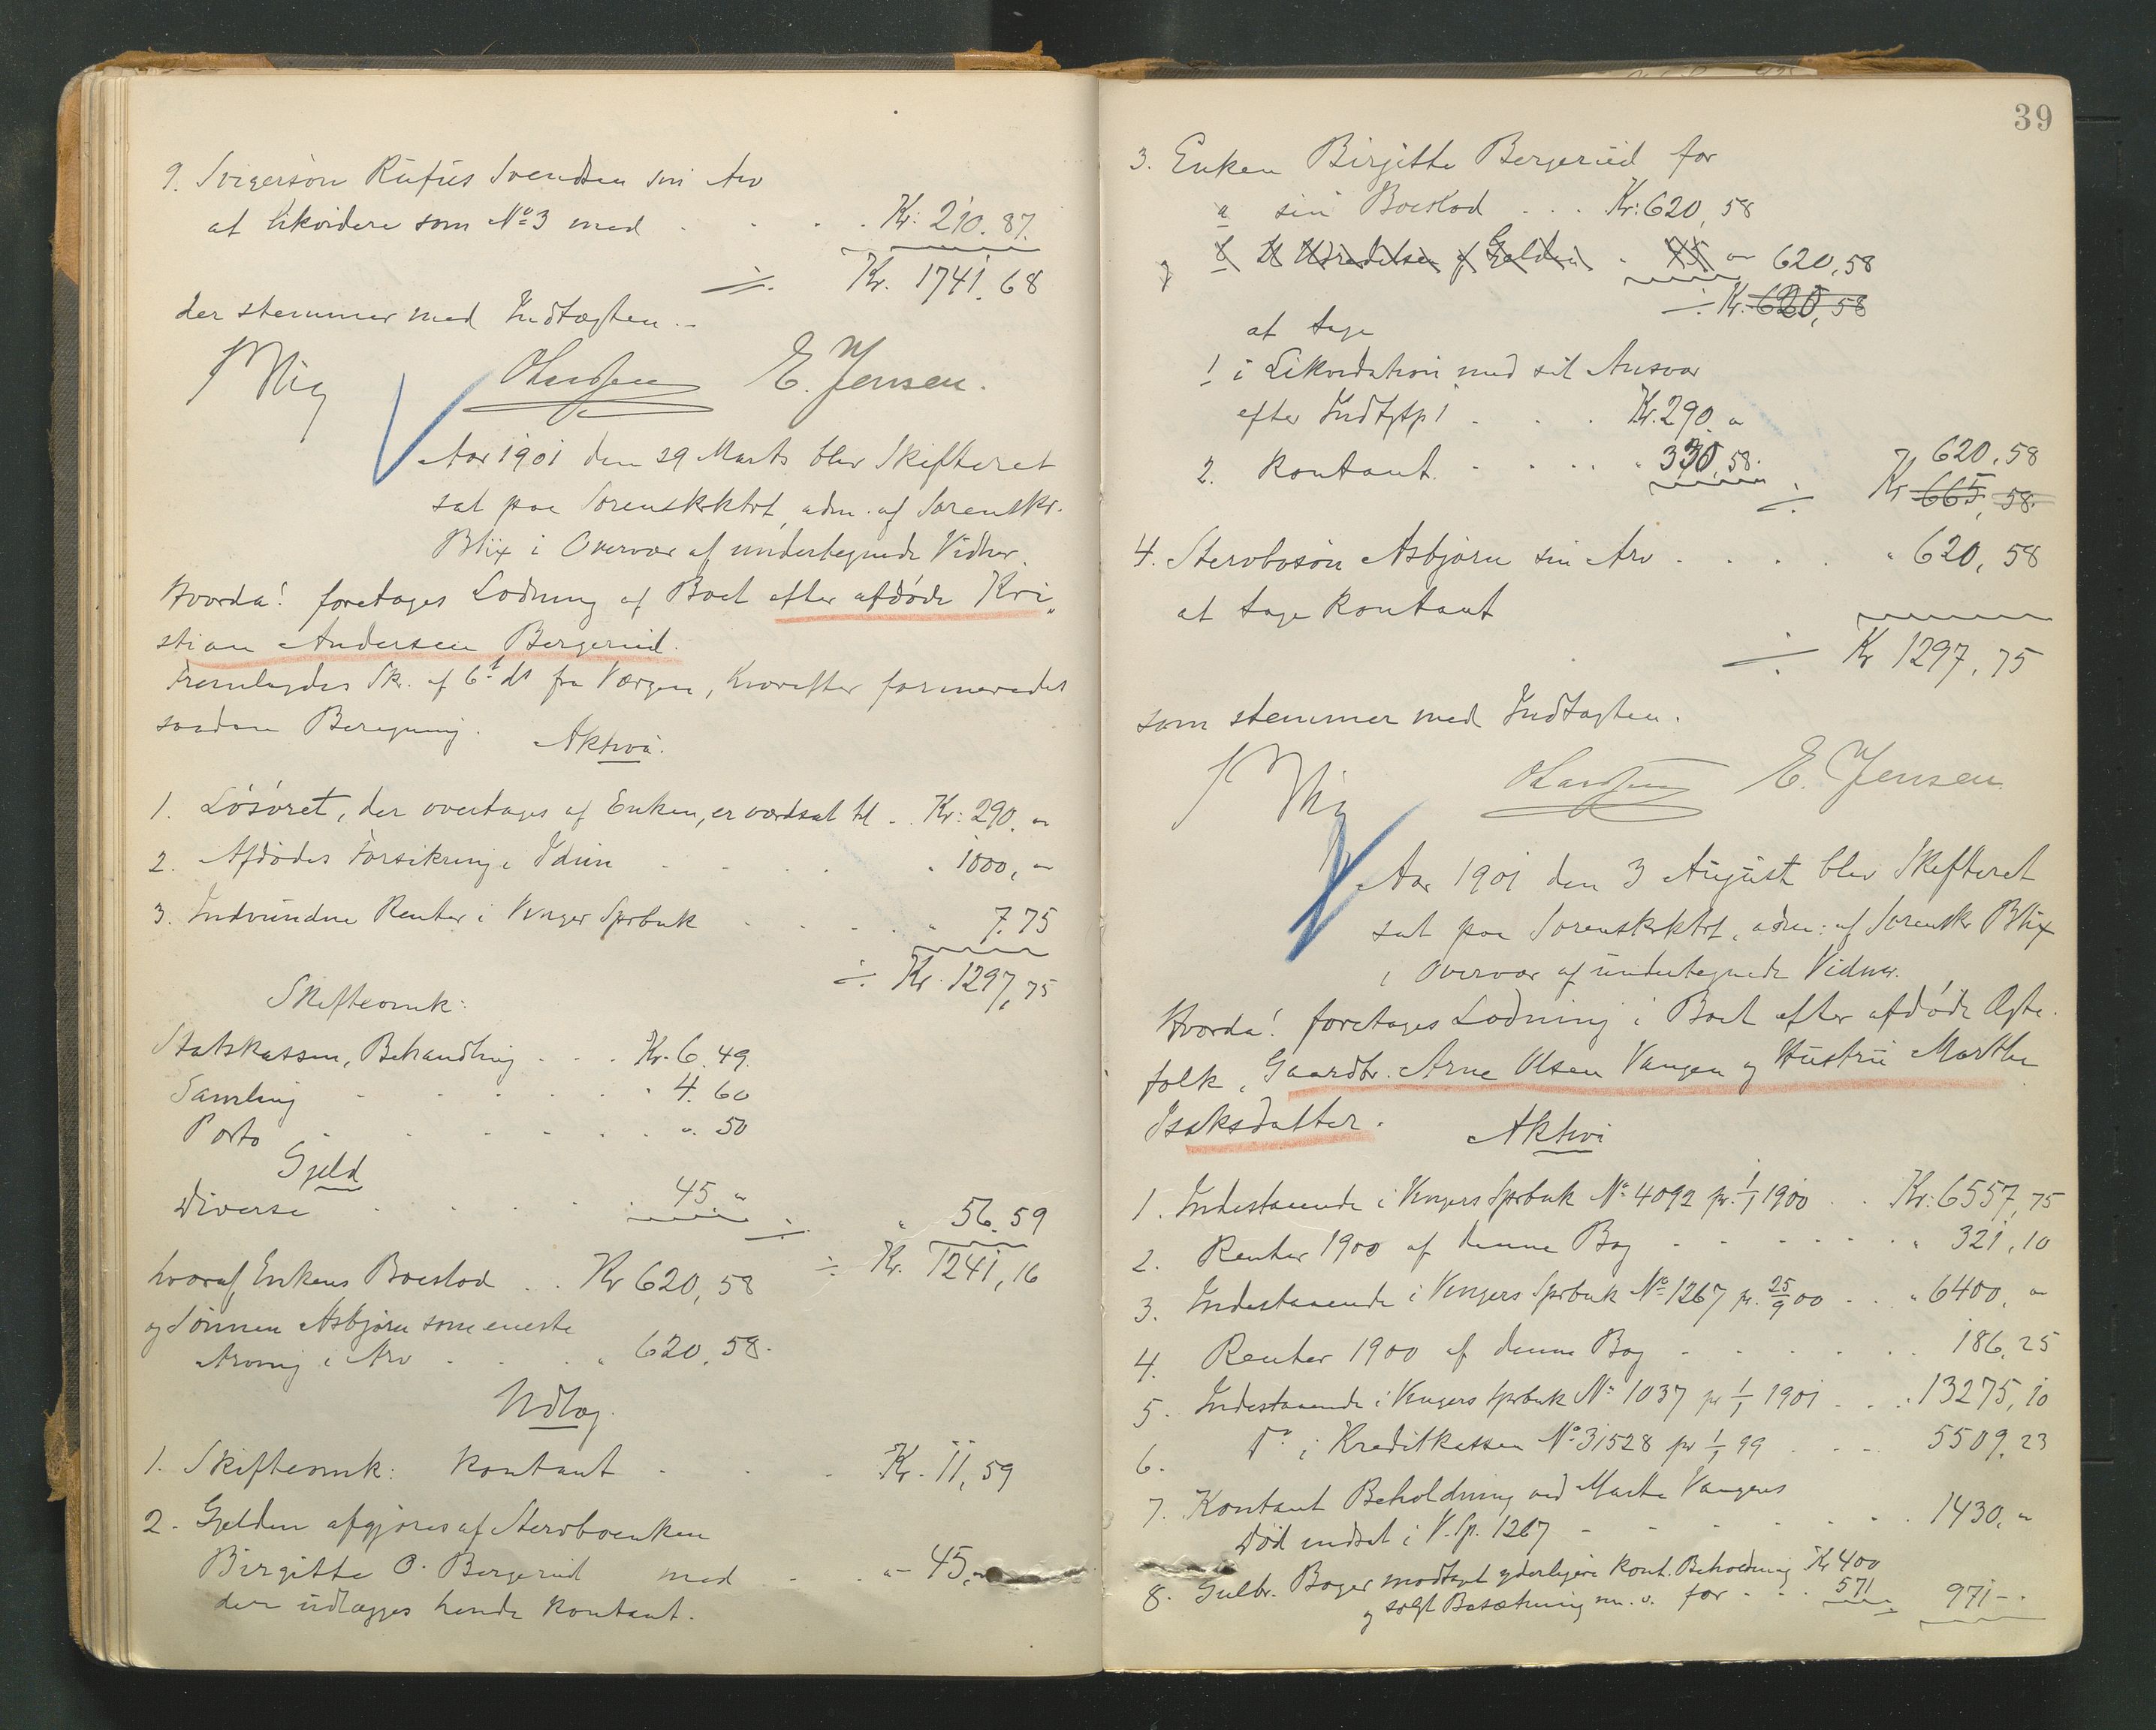 9. Svigersön Rufus Svendsen sin Arv
at likvidere som No 3 med . . . . Kr: 210. 87.
÷ Kr. 1741. 68
der stemmer med Indtægten.
Blix E. Jensen.
Aar 1901 den 29 Marts blev Skifteret
sat paa Sorenskrktrt, adm. af Sorenskr.
Blix i Overvær af undertegnede Vidner.
Hvorda! foretages Lodning af Boet efter afdöde Kri„
stian Andersen Bergerud.
Fremlagdes Skr. af 6te ds fra Værgen, hvorefter formeredes
saadan Beregning.
Aktiva.
1. Lösöret, der overtages af Enken, er værdsat til . . Kr: 290. "
2. Afdödes Forsikring i Idun . . . . " 1000, "
3. Indvundne Renter i Vinger Sprbnk . . . . " 7.75
÷ Kr. 1297,75
Skifteomk:
Statskassen, Behandling . . . Kr. 6. 49.
Samling . . . . . . " 4. 60
Porto . . . . . . ". 50
Gjeld
Diverse . . . . 45 " ÷ " 56. 59
÷ Kr. 1241,16
hvoraf Enkens Boeslod . . Kr 620,58
og Sönnen Asbjörn som eneste
Arving i Arv . . . " 620.58.
Udlæg.
1. Skifteomk: kontant . . . Kr. 11,59
2. Gjelden afgjöres af Stervboenken
Birgitte O. Bergerud med . . "- 45,"
der udlægges hende kontant.
39
3. Enken Birgitte Bergerud for
a sin Boeslod . . . Kr: 620,58
b til Udredelse af Gjelden . 45 " 620,58
÷ Kr. 620,58
at tage
1 i Likvidation med sit Ansvar
efter Indtgtp 1 . . . Kr. 290. "
2. kontant . . . . " 330,58. " 620,58
÷ Kr 665,58.
4. Stervbosön Asbjörn sin Arv . . . . " 620,58
at tage kontant
÷ Kr 1297,75
som stemmer med Indtægten.
Blix E. Jensen
Aar 1901 den 3 August blev Skifteret
sat paa Sorenskrktrt, adm: af Sorenskr Blix
i Overvær af undertegnede Vidner.
Hvorda! foretages Lodning i Boet efter afdöde Ægte-
folk, Gaardbr. Arne Olsen Vangen og Hustru Marthe
Isaksdatter.
Aktivi
1. Indestaaende i Vingers Sprbnk No 4092 pr. 1/1 1900 . . Kr: 6557,75
2. Renter 1900 af denne Bog . . . . . . " 321,10
3. Indestaaende i Vingers Sprbnk No 1267 pr. 25/9 00 . . " 6400, "
4. Renter 1900 af denne Bog . . . . . 186,25
5. Indestaaende i Vingers Sprbnk No 1037 pr 1/1 1901 . . . 13275,10
6. Do i Kreditkassen No 31528 pr 1/1 99 . . . . 5509,23
7. Kontant Beholdning ved Marte Vangens
Död indsat i V. Sp. 1267 . . . . . . . 1430, "
8. Gulbr. Boger modtaget yderligere kont. Beholdning Kr 400
og solgt Besætning m. v. for . . . 571 971-.